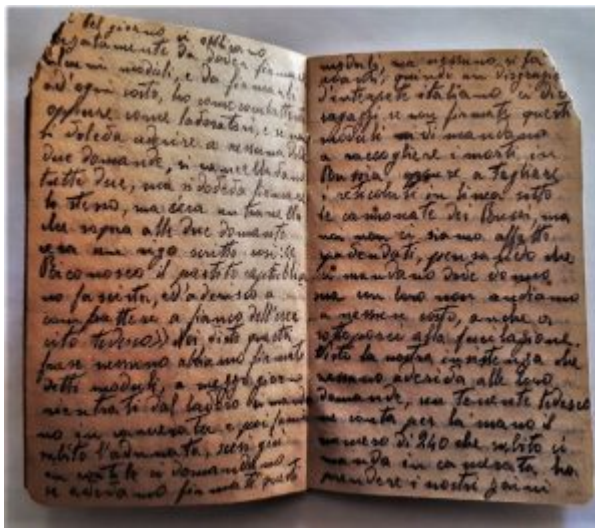 del giorno, si
da dover firmare
moduli, e da firmarli
ad ogni costo, ho come combattenti
oppure come lavoratori, e se non
si voleva aderire a nessuna delle
due domande, si cancelladano
tutte due, ma si doveda firmare
lo stesso, ma cera un tranello
che sopra alle due domande
cera un rigo scritto così: ((
Riconosco il partito repubblica
no fascista, ed aderisco a
combattere a fianco dell'eser
cito tedesco)) Noi, visto questa
frase nessuno abbiamo firmato
detti moduli, a mezzo giorno
rientrati dal lavoro ci manda
no in camerata e poi fanno
subito l'adunata, scesi giù
in cortile ci domandano
se avevamo firmati questi
moduli, ma nessuno si fa
avanti, quindi un disgraziato
d'interprete italiano ci dice
ragazzi se non firmate questi
moduli vi di mandano
a raccogliere i morti in
Russia oppure a tagliare
i reticolati in linea sotto
le cannonate dei Russi, ma
noi non ci siamo affatto
spaventati, pensando che
ci mandano dove vonno
ma con loro non andiamo
a nessun costo, anche a
sottoporci alla fucilazione.
Visto la nostra insistenza che
nessuno aderiva alle loro
domande, un tenente tedesco
ne conta per la mano il
numero di 240 che subito ci
manda in camerata, ha
prendere i nostri panni